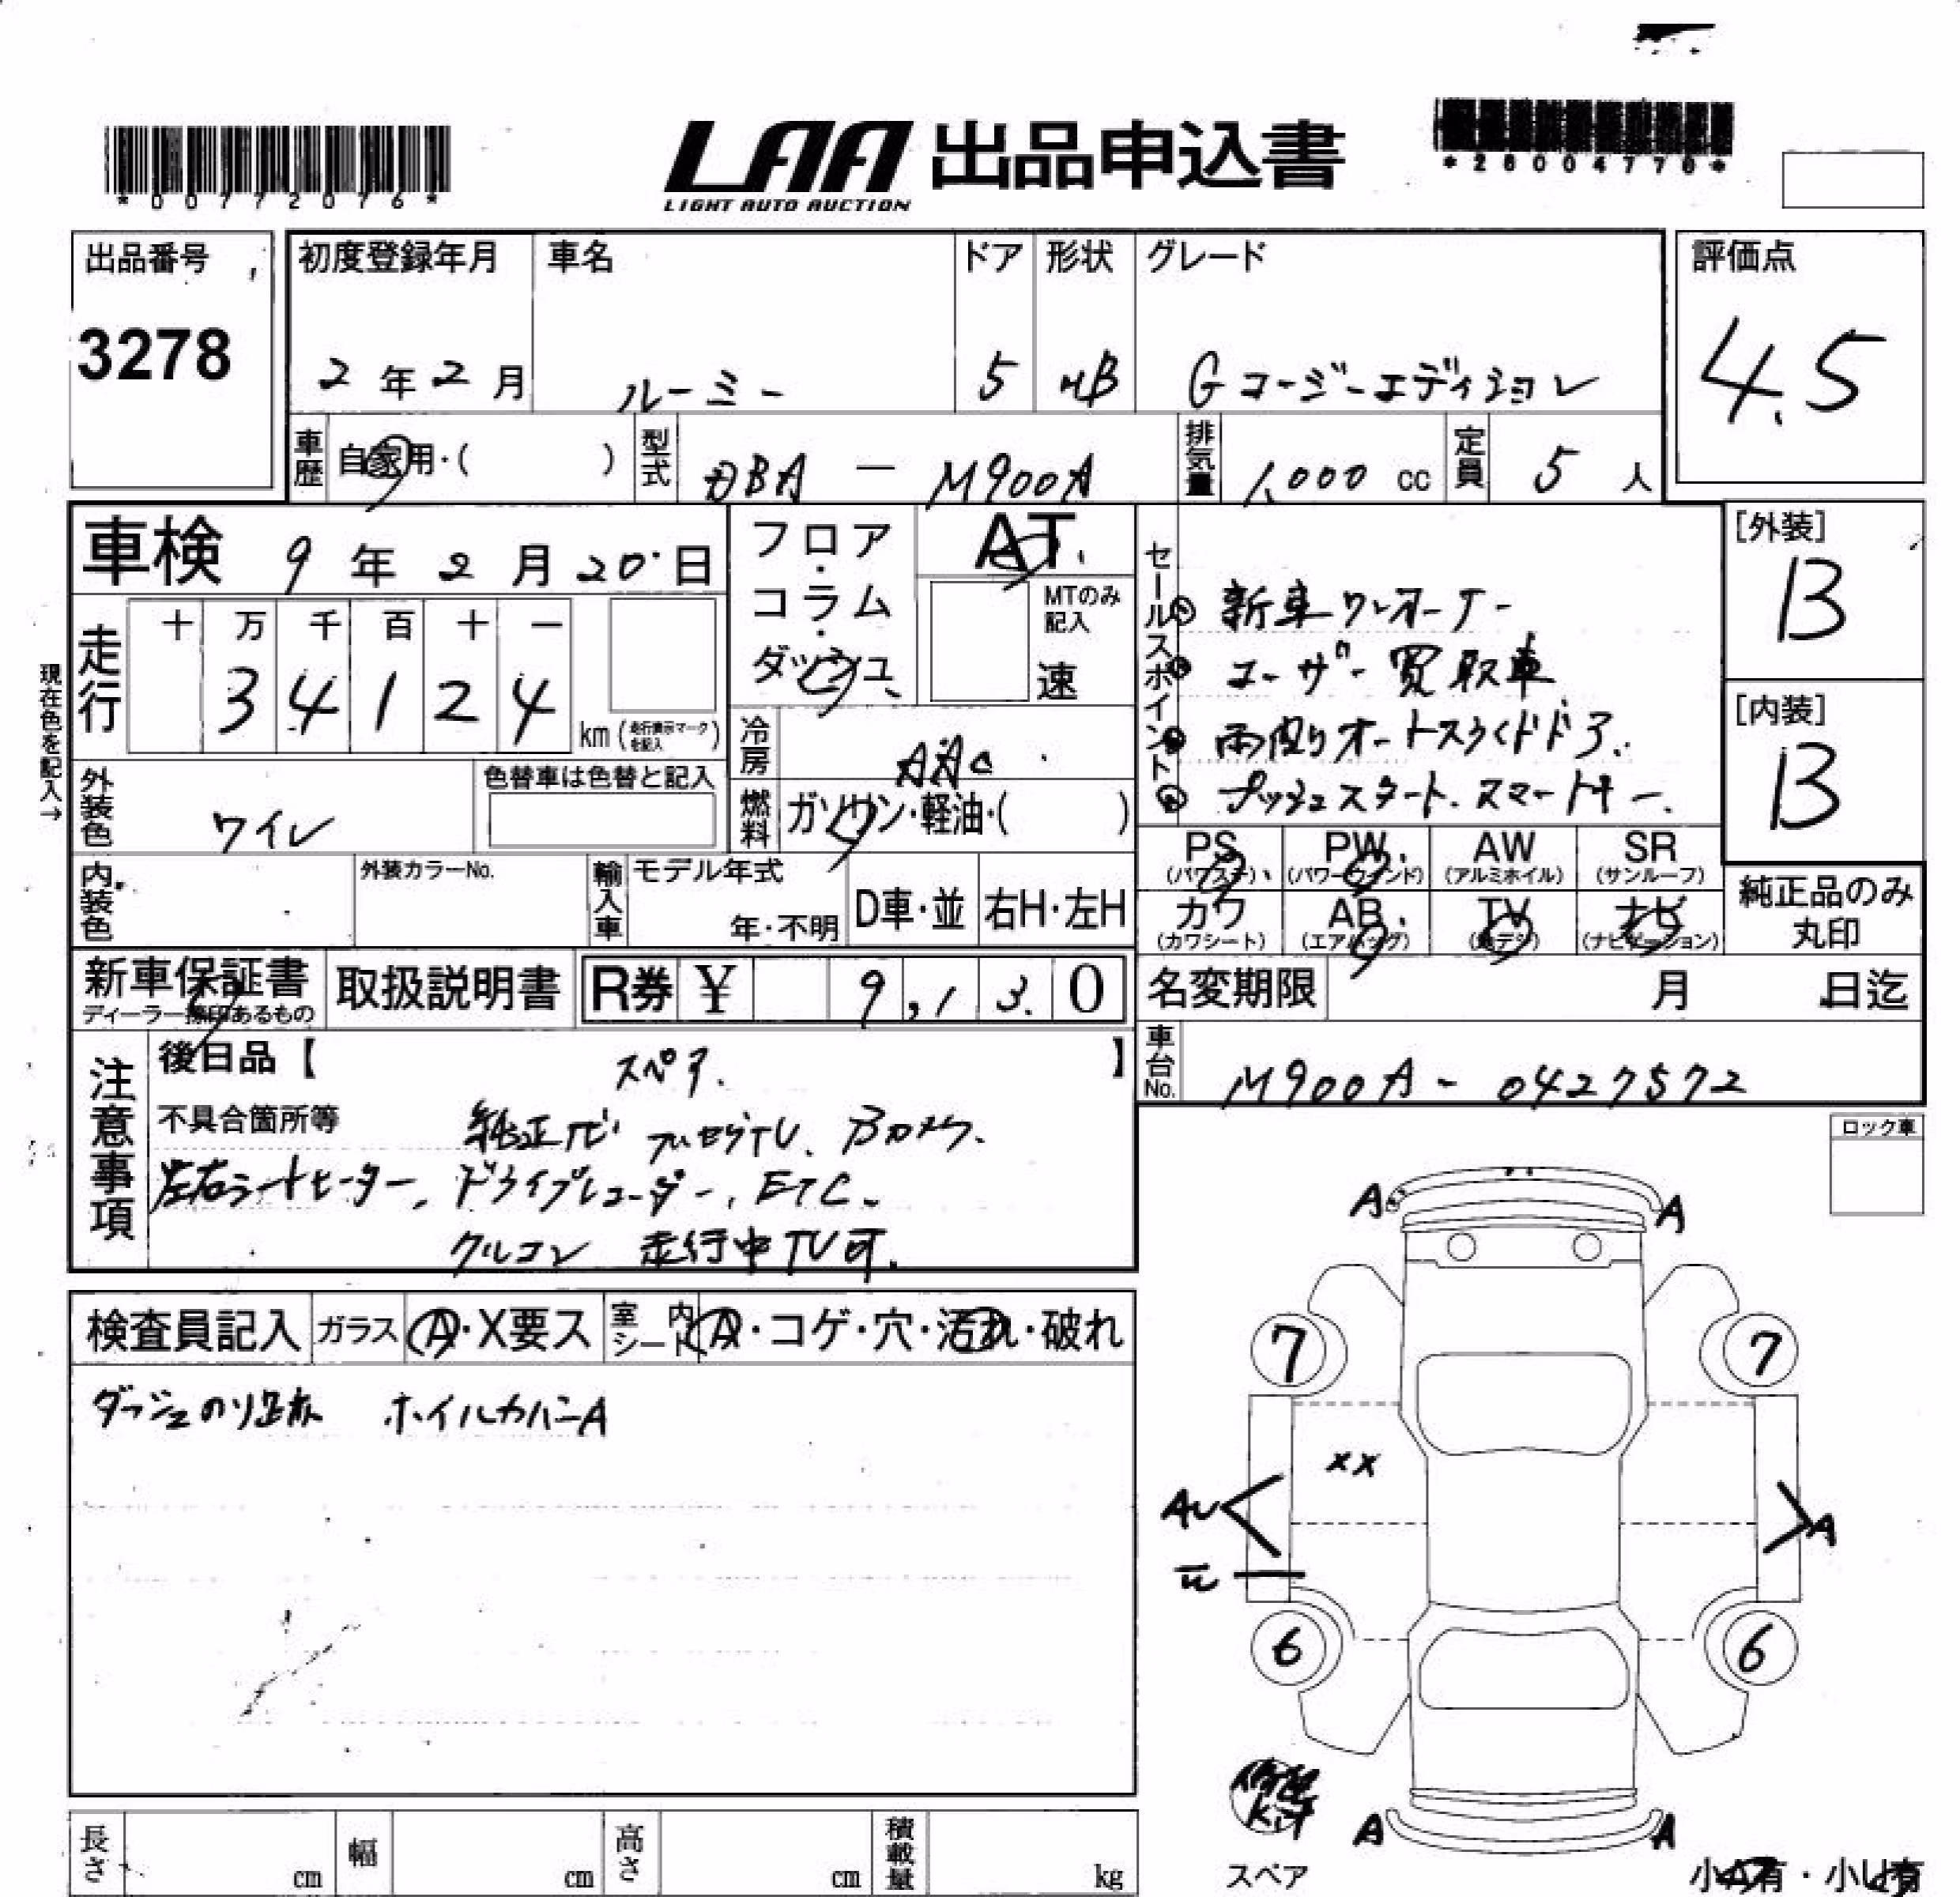 *00772076*
LAA 出品申込書
LIGHT AUTO AUCTION
*26004776*
出品番号
3278
初度登録年月
2年2月
車名
ルーミー
ドア
5
形状
HB
グレード
Gコージーエディション
評価点
4.5
車歴
自家用・( )
型式
DBA — M900A
排気量
1,000 cc
定員
5 人
車検 9年2月20日
フロア・コラム・ダッシュ
AT
MTのみ記入
速
セールスポイント
新車ワンオーナー
ユーザー買取車
両側オートスライドドア
プッシュスタート.スマートキー.
[外装]
B
[内装]
B
現在色を記入→
走行
十 万 千 百 十 一
3 4 1 2 4
km(走行表示マークを記入)
冷房
AAC
燃料
ガソリン・軽油・( )
外装色
ワイン
色替車は色替と記入
内装色
外装カラーNo.
輸入車
モデル年式
年・不明
D車・並
右H・左H
PS
(パワステ)
PW
(パワーウィンド)
AW
(アルミホイル)
SR
(サンルーフ)
カワ
(カワシート)
AB
(エアバッグ)
TV
(地デジ)
ナビ
(ナビゲーション)
純正品のみ
丸印
新車保証書
ディーラー捺印あるもの
取扱説明書
R券 ¥ 9,130
名変期限
月 日迄
車台No.
M900A - 0427572
注意事項
後日品【 スペア. 】
不具合箇所等
純正ナビ フルセグTV. Bカメラ.
左右シートヒーター. ドライブレコーダー. ETC.
クルコン 走行中TV可.
ロック車
検査員記入
ガラス
A・X要ス
室内シート
A・コゲ・穴・汚れ・破れ
ダッシュのり跡 ホイルカバーA
A A
7 7
XX
AU
A
6 6
修理kit
スペア
A A
小A有・小U有
長さ cm
幅 cm
高さ cm
積載量 kg